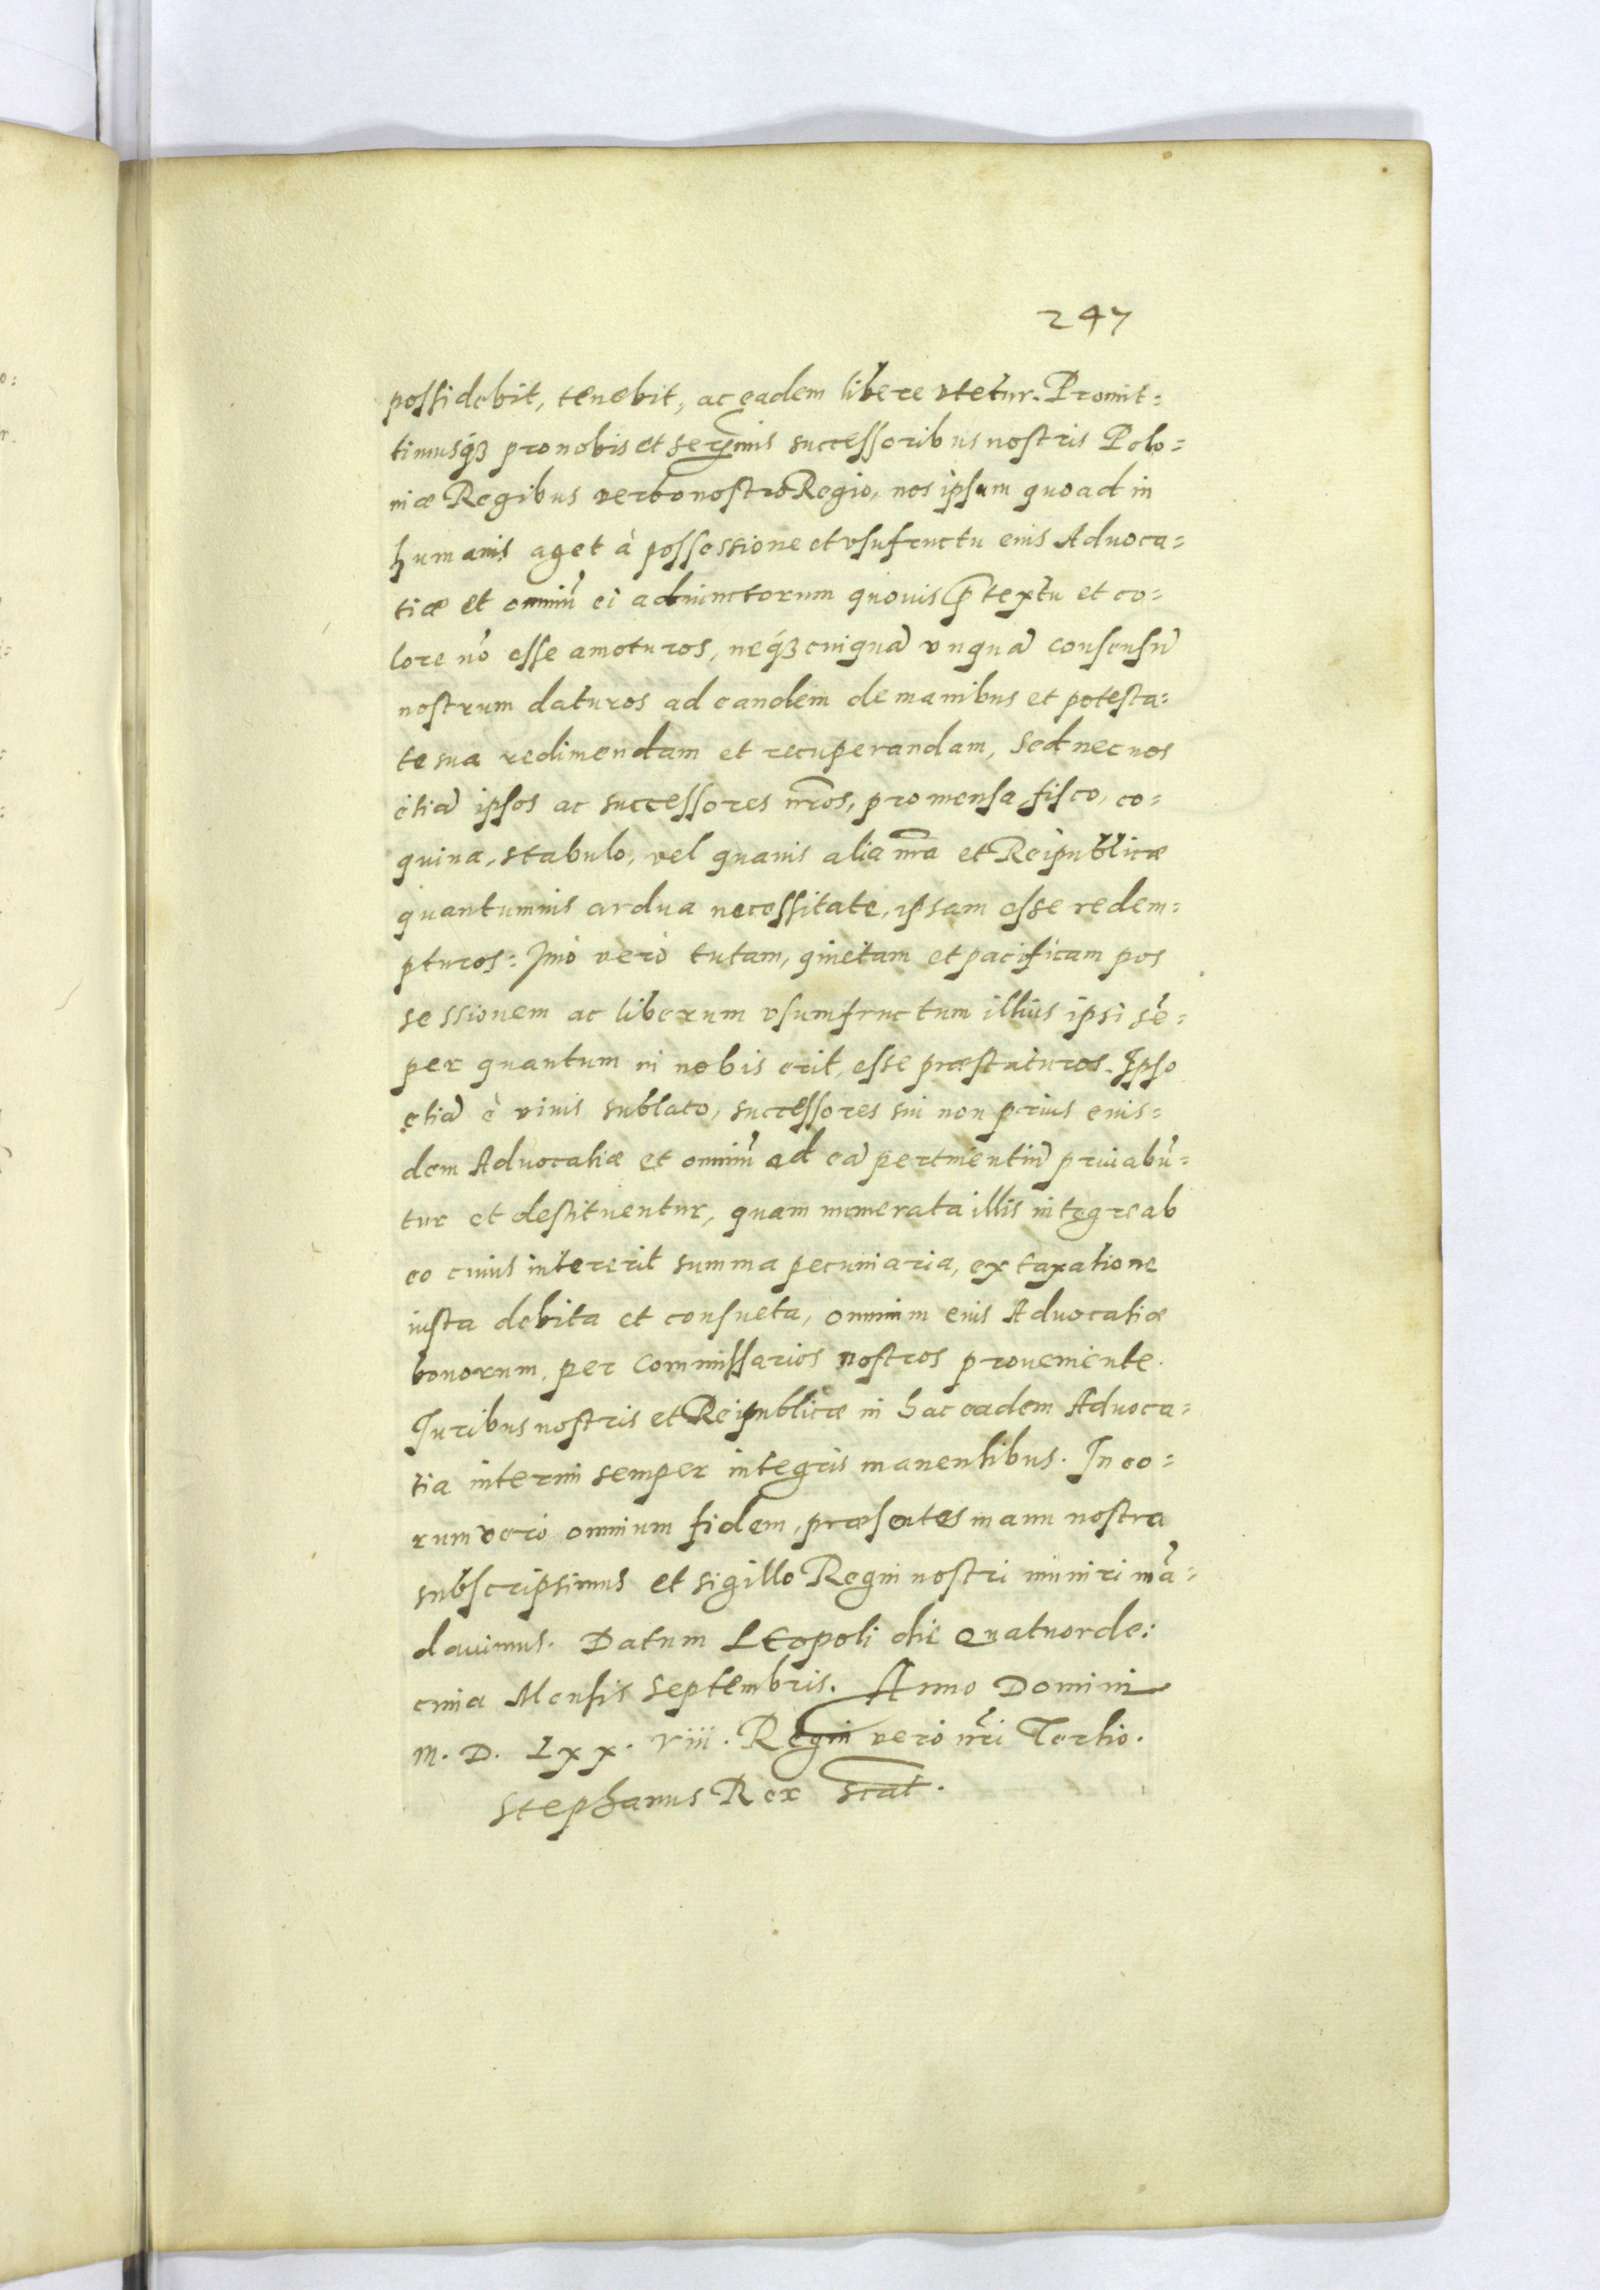 247
possidebit, tenebit, ac eadem libere vtetur. Promit=
timusq́ȝ pro nobis et ser[mis] successoribus nostris Polo=
niæ Regibus verbo nostro Regio, nos ipsum quoad in
humanis aget à possessione et vsufructu eius Aduoca=
tiæ et omniũ ei adiunctorum quouis p̃textu et co=
lore nõ esse amoturos, neq́ȝ cuiquã vnquã consensũ
nostrum daturos ad eandem de manibus et potesta=
te sua redimendam et recuperandam, sed nec nos
etiã ipsos ac successores nr̃os, pro mensa, fisco, co=
quina, stabulo, vel quauis alia nr̃a et Reipublicæ
quantumuis ardua necessitate, ipsam esse redem=
pturos: Imò verò tutam, quietam et pacificam pos
sessionem ac liberum vsumfructum illius ipsi sẽ=
per quantum in nobis erit, esse præstituros. Ipso
etiã è viuis sublato, successores sui non prius eius=
dem Aduocatiæ et omniũ ad eã pertinentiũ priuabũ=
tur et destituentur, quam numerata illis integre ab
eo cuius intererit summa pecuniaria, ex taxatione
iusta debita et consueta, omnium eius Aduocatiæ
bonorum, per Commissarios nostros proueniente.
Iuribus nostris et Reipublicæ in hac eadem Aduoca=
tia interim semper integris manentibus. In eo=
rum verò omnium fidem, præsentes manu nostra
subscripsimus et sigillo Regni nostri muniri mã=
dauimus. Datum Leopoli die Quatuorde:
cima Mensis Septembris. Anno Domini
M. D. Lxx. viii. Regni vero nr̃i Tertio.
Stephanus Rex scat.